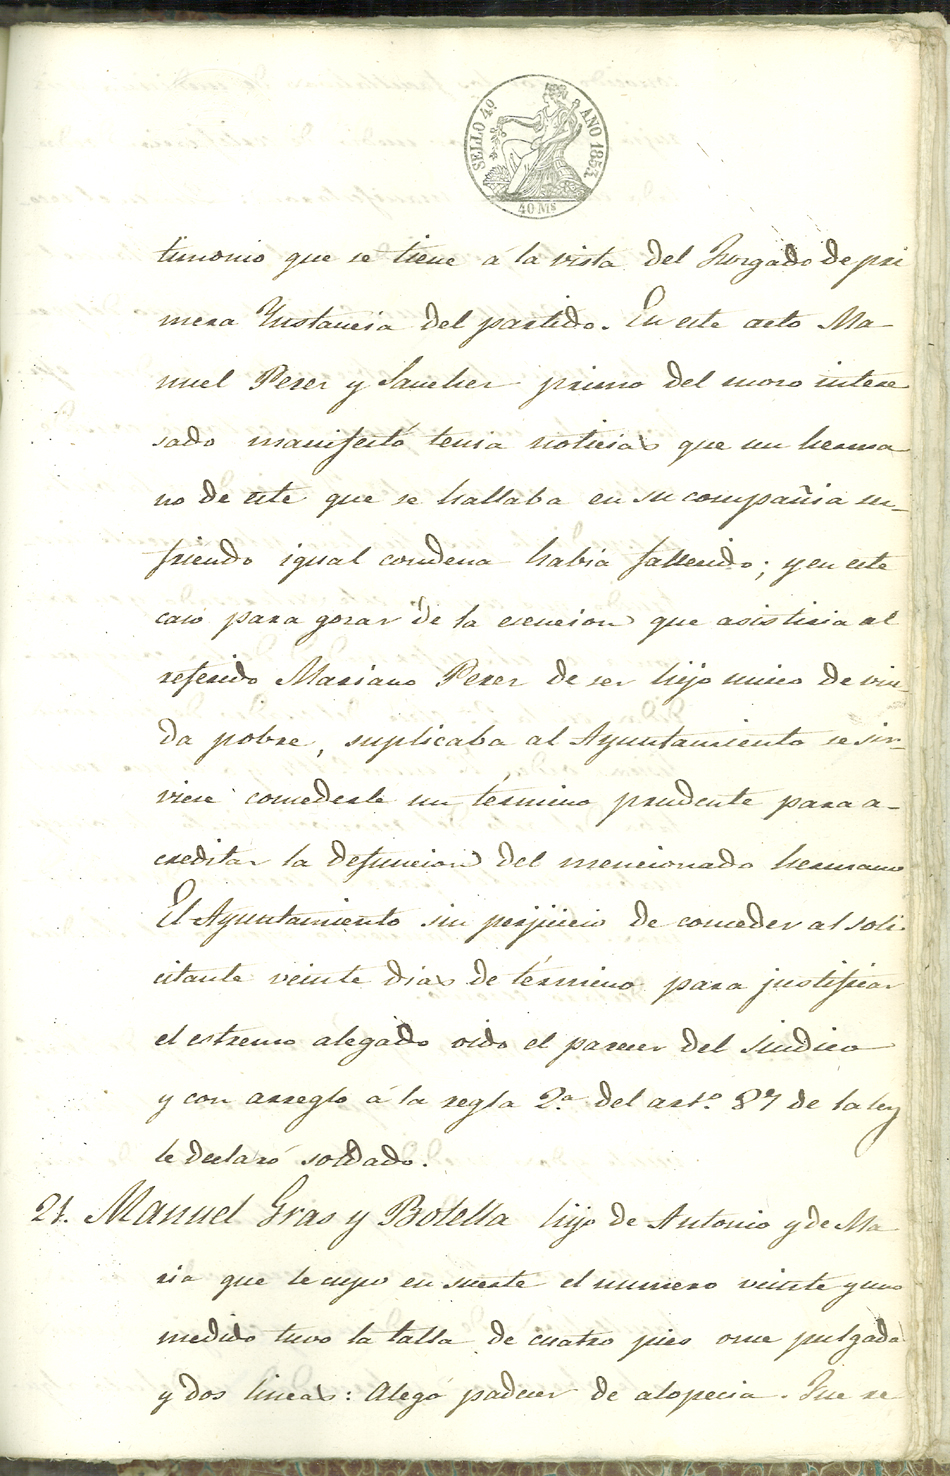 SELLO 4º AÑO 1853.
40 Ms
timonio que se tiene á la vista del Juzgado de pri
mera Instancia del partido. En este acto Ma-
nuel Perez y Sanchez primo del mozo intere
sado manifestó tenia noticias que un herma
no de este que se hallaba en su compañia su-
friendo igual condena habia fallecido; y en este
caso para gozar de la esencion que asistiria al
referido Mariano Perez de ser hijo unico de viu-
da pobre, suplicaba al Ayuntamiento se sir-
viese concederle un término prudente para a-
creditar la defuncion del mencionado hermano
El Ayuntamiento sin perjuicio de conceder al soli
citante veinte dias de término para justificar
el estremo alegado oido el parecer del Sindico
y con arreglo á la regla 2.ª del art.º 87 de la ley
le declaró soldado.
21. Manuel Gras y Botella hijo de Antonio y de Ma
ria que le cupo en suerte el numero veinte y uno
medido tuvo la talla de cuatro pies once pulgadas
y dos lineas: Alegó padecer de alopecia. Fue re